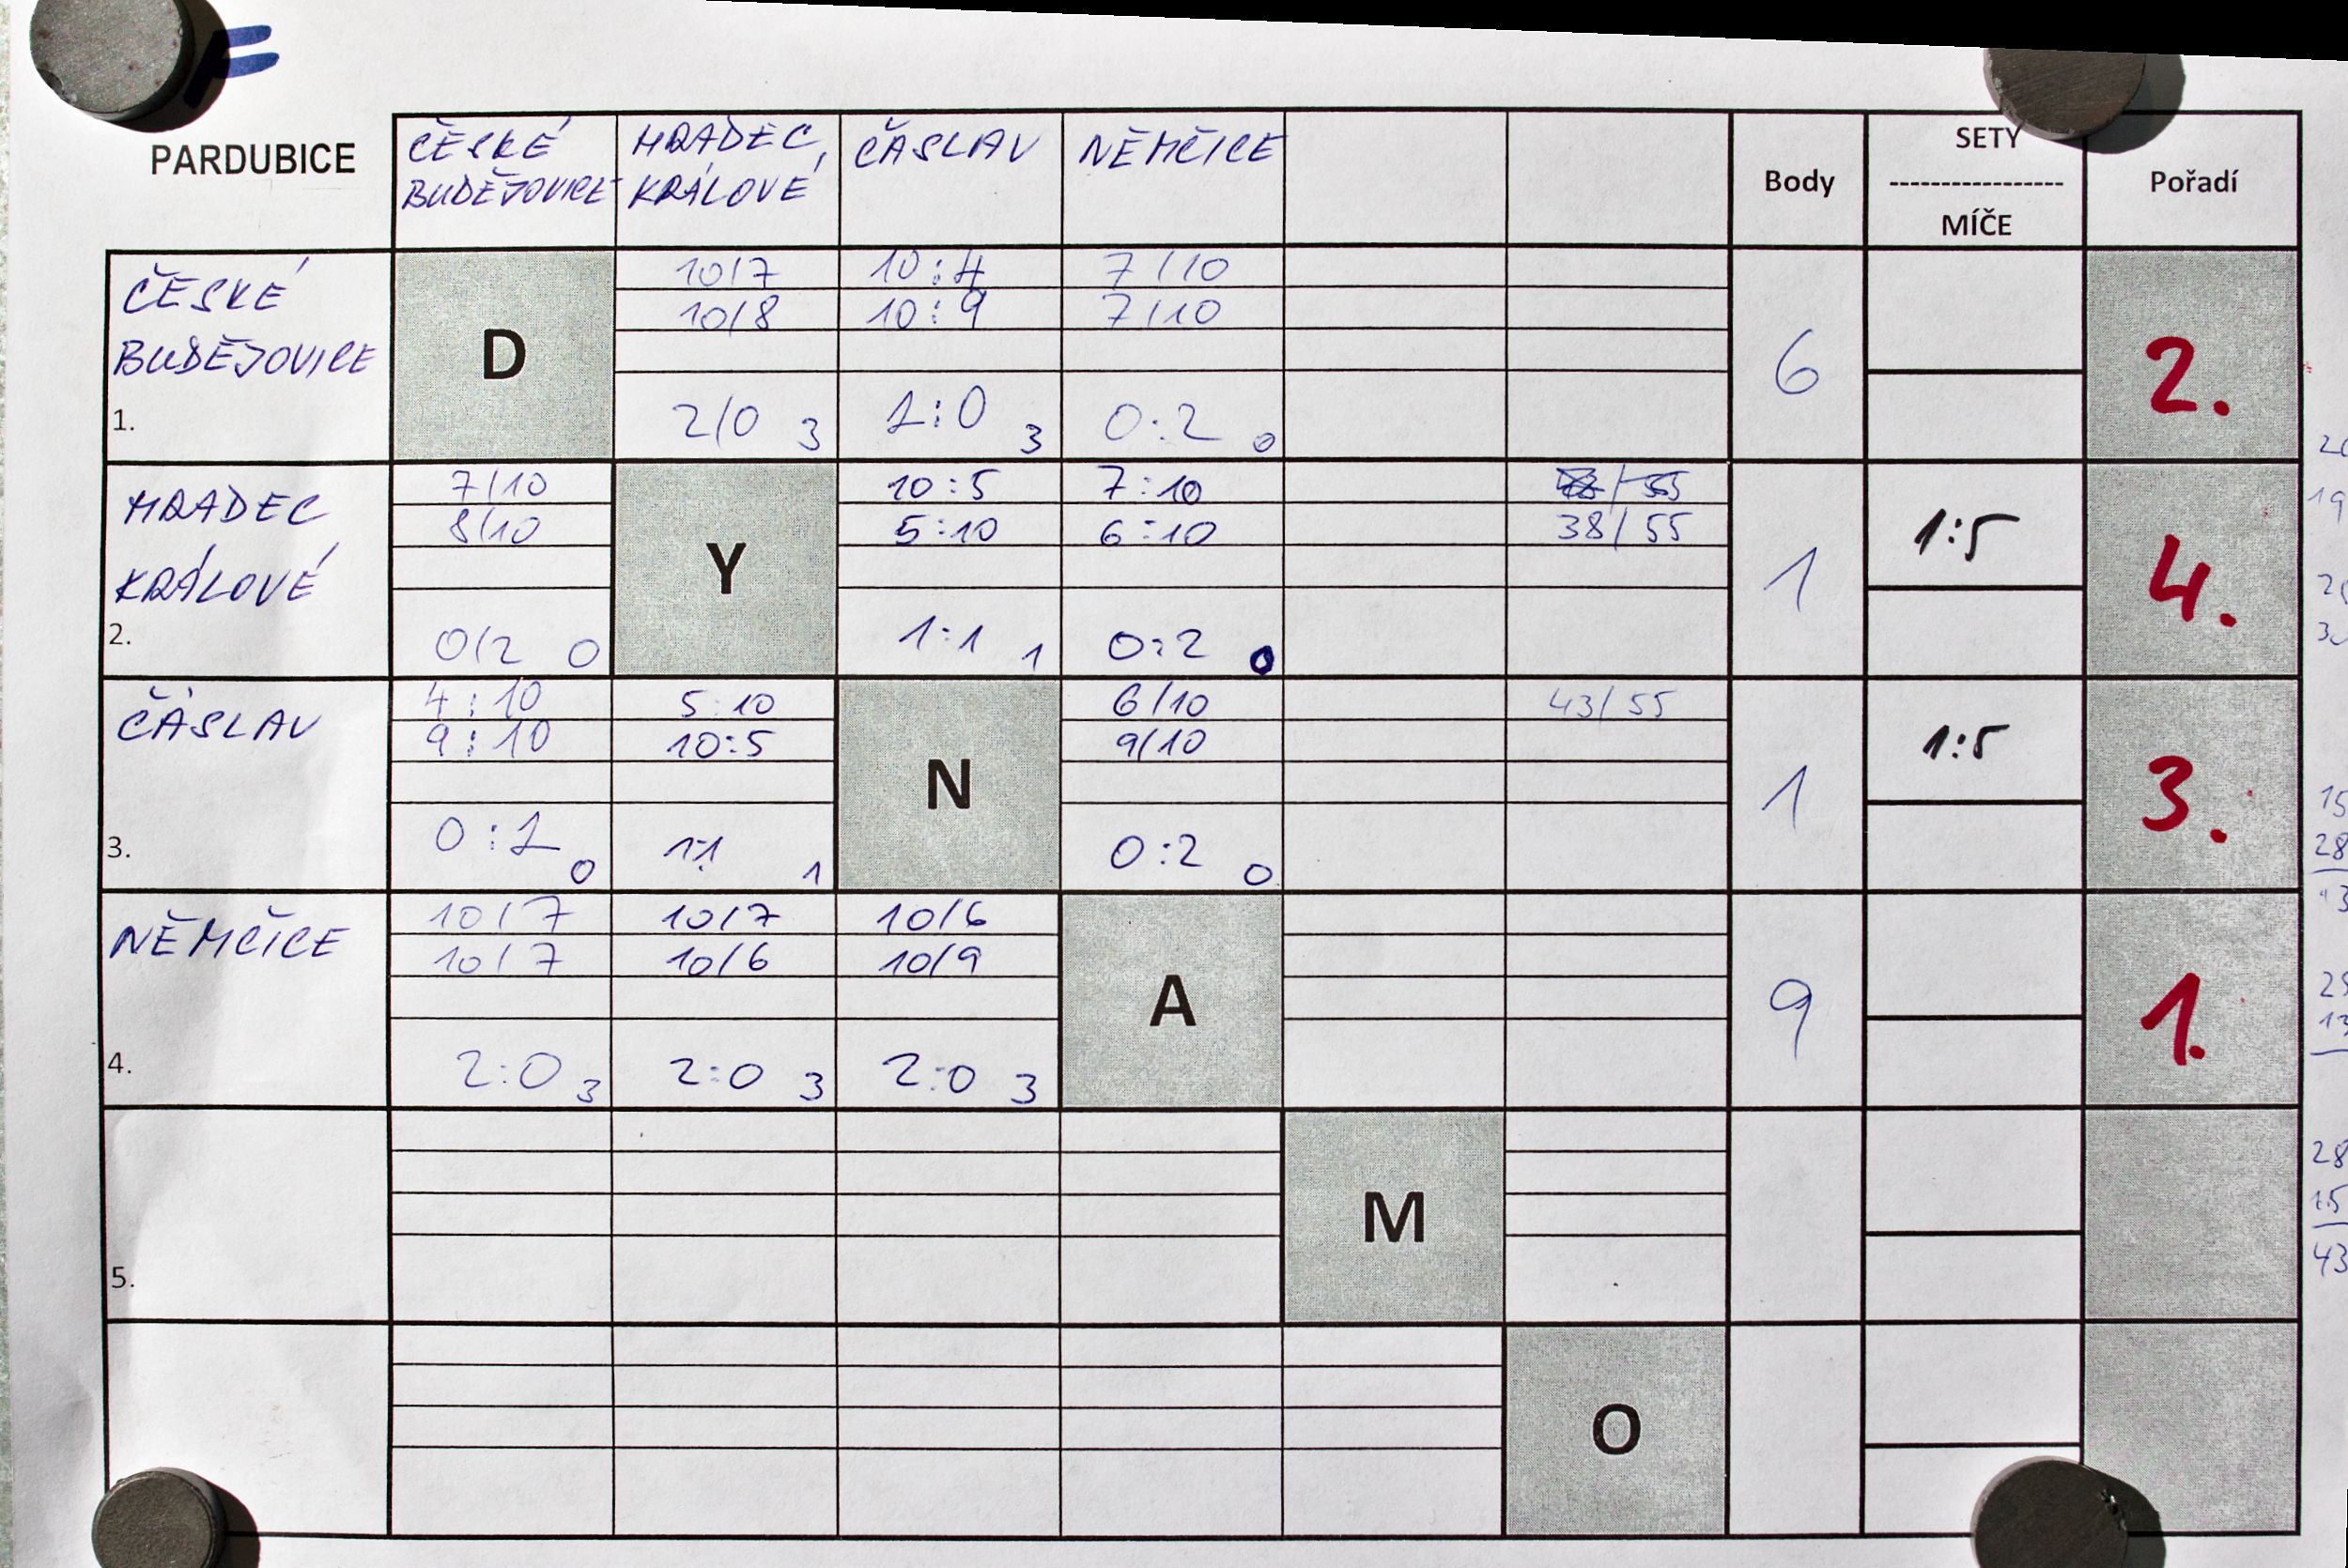 F
PARDUBICE
ČESKÉ BUDĚJOVICE
HRADEC KRÁLOVÉ
ČÁSLAV
NĚMČICE
Body
SETY
-----------------
MÍČE
Pořadí
ČESKÉ
BUDĚJOVICE
1.
D
10/7 10:4 7/10
10/8 10:9 7/10
2/0 3 2:0 3 0:2 0
6
2.
HRADEC
KRÁLOVÉ
2.
7/10 10:5 7:10
8/10 5:10 6:10 38/55
Y
0/2 0 1:1 1 0:2 0
1
1:5
4.
ČÁSLAV
3.
4:10 5:10 6/10 43/55
9:10 10:5 9/10
N
0:2 0 1:1 1 0:2 0
1
1:5
3.
NĚMČICE
4.
10/7 10/7 10/6
10/7 10/6 10/9
A
2:0 3 2:0 3 2:0 3
9
1.
5.
M
O
19
15
28
28
15
43